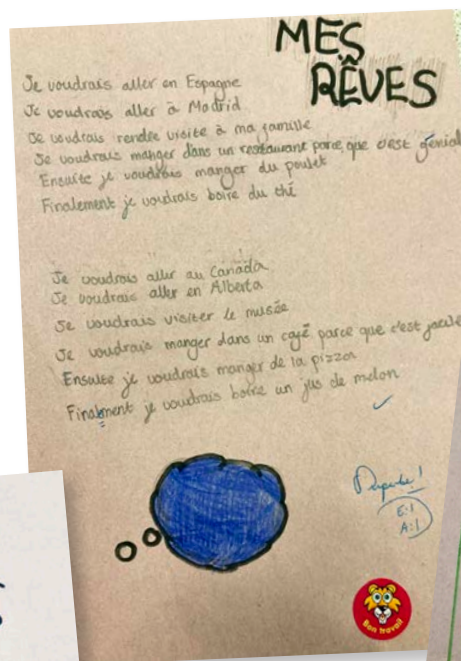 MES
RÊVES
Je voudrais aller en Espagne
Je voudrais aller à Madrid
Je voudrais rendre visite à ma famille
Je voudrais manger dans un restaurant parce que c'est génial
Ensuite je voudrais manger du poulet
Finalement je voudrais boire du thé
Je voudrais aller au Canada
Je voudrais aller en Alberta
Je voudrais visiter le musée
Je voudrais manger dans un café parce que c'est
Ensuite je voudrais manger de la pizza
Finalment je voudrais boire un jus de melon
E:1
A:1
Bon travail